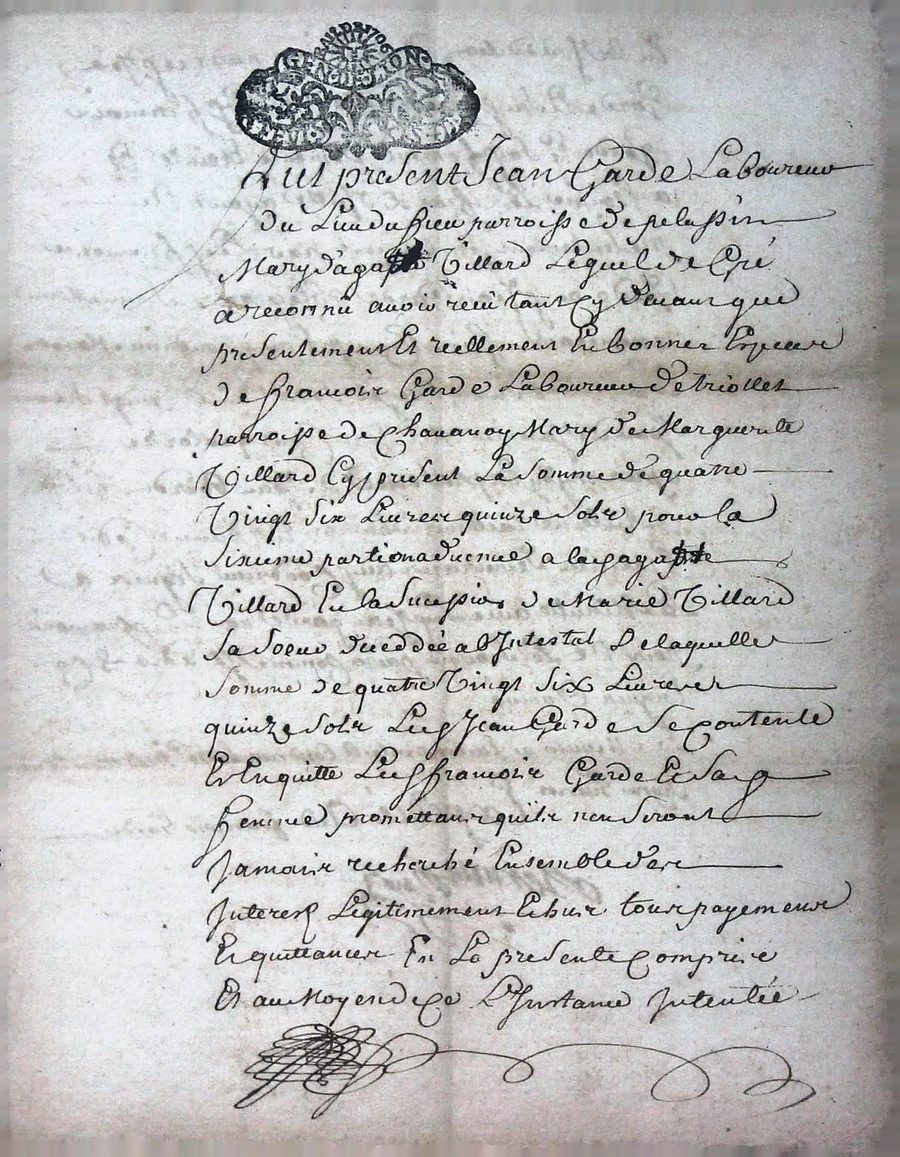 GEN DE LYON
Fut present Jean Garde Laboureur
du Lieu du parroisse de pelassin
Mary d'aga Villard Lequel de gré
a reconnu avoir receu tant cy devant que
presentement Et reellement En bonnes Especes
de françois Garde Laboureur de triollet
parroisse de Chavanoy Mary de Marguerite
Villard Cy present La somme de quatre
Vingt six Livres quinze sols pour la
sixieme partion advenue a lad aga
Villard En la sucession de Marie Villard
sa soeur deceddée ab Intestat De laquelle
somme de quatre Vingt six Livres
quinze sols Led Jean Garde se contente
Et En quitte Led françois Garde Et sad
femme promettant quils nen seront
Jamais recherché Ensemble des
Interest Legitimement Echus tous payements
Et quittances En La presente comprise
Et au Moyen de Ce L'Instance Intentée